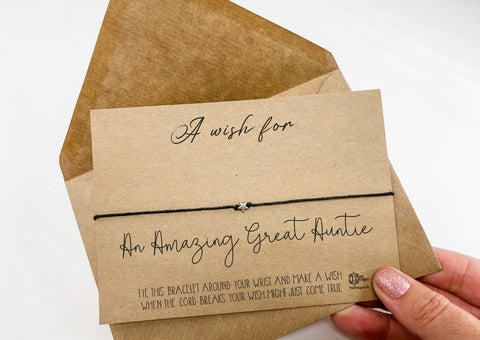 A wish for
An Amazing Great Auntie
TIE THIS BRACELET AROUND YOUR WRIST AND MAKE A WISH
WHEN THE CORD BREAKS YOUR WISH MIGHT JUST COME TRUE